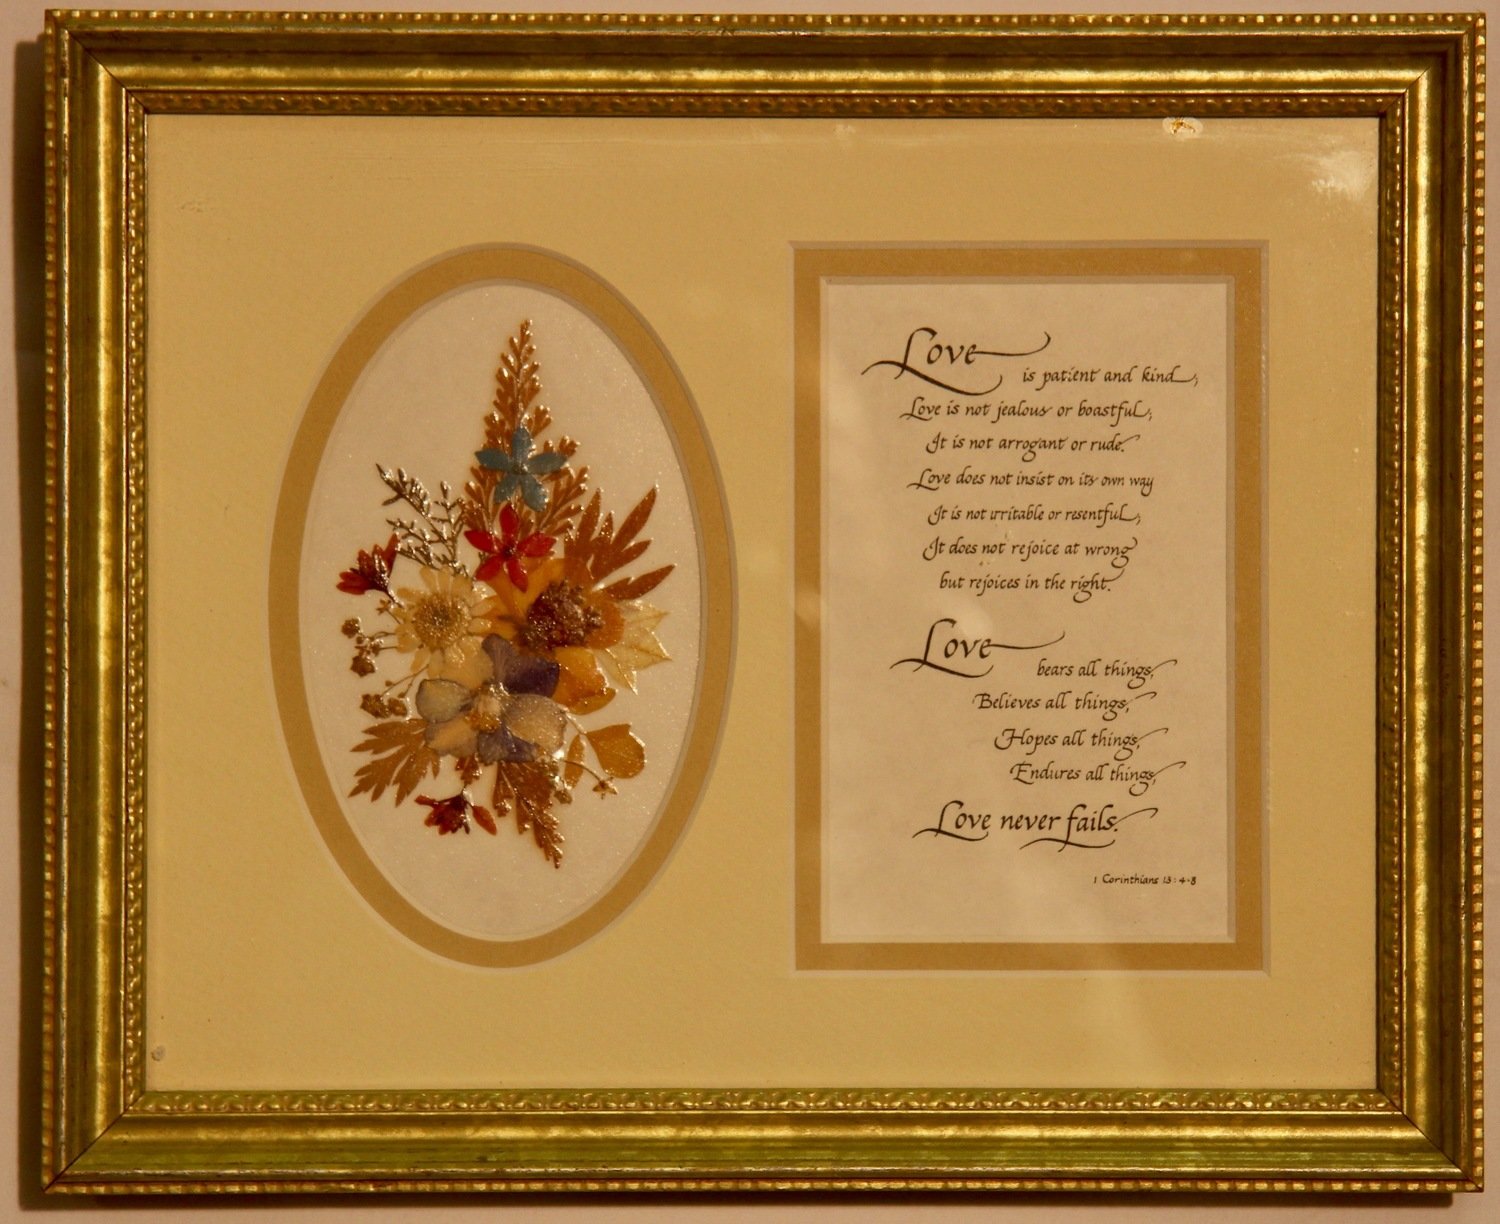 Love
is patient and kind;
Love is not jealous or boastful;
It is not arrogant or rude.
Love does not insist on its own way
It is not irritable or resentful;
It does not rejoice at wrong
but rejoices in the right.
Love
bears all things,
Believes all things,
Hopes all things,
Endures all things,
Love never fails.
1 Corinthians 13:4-8